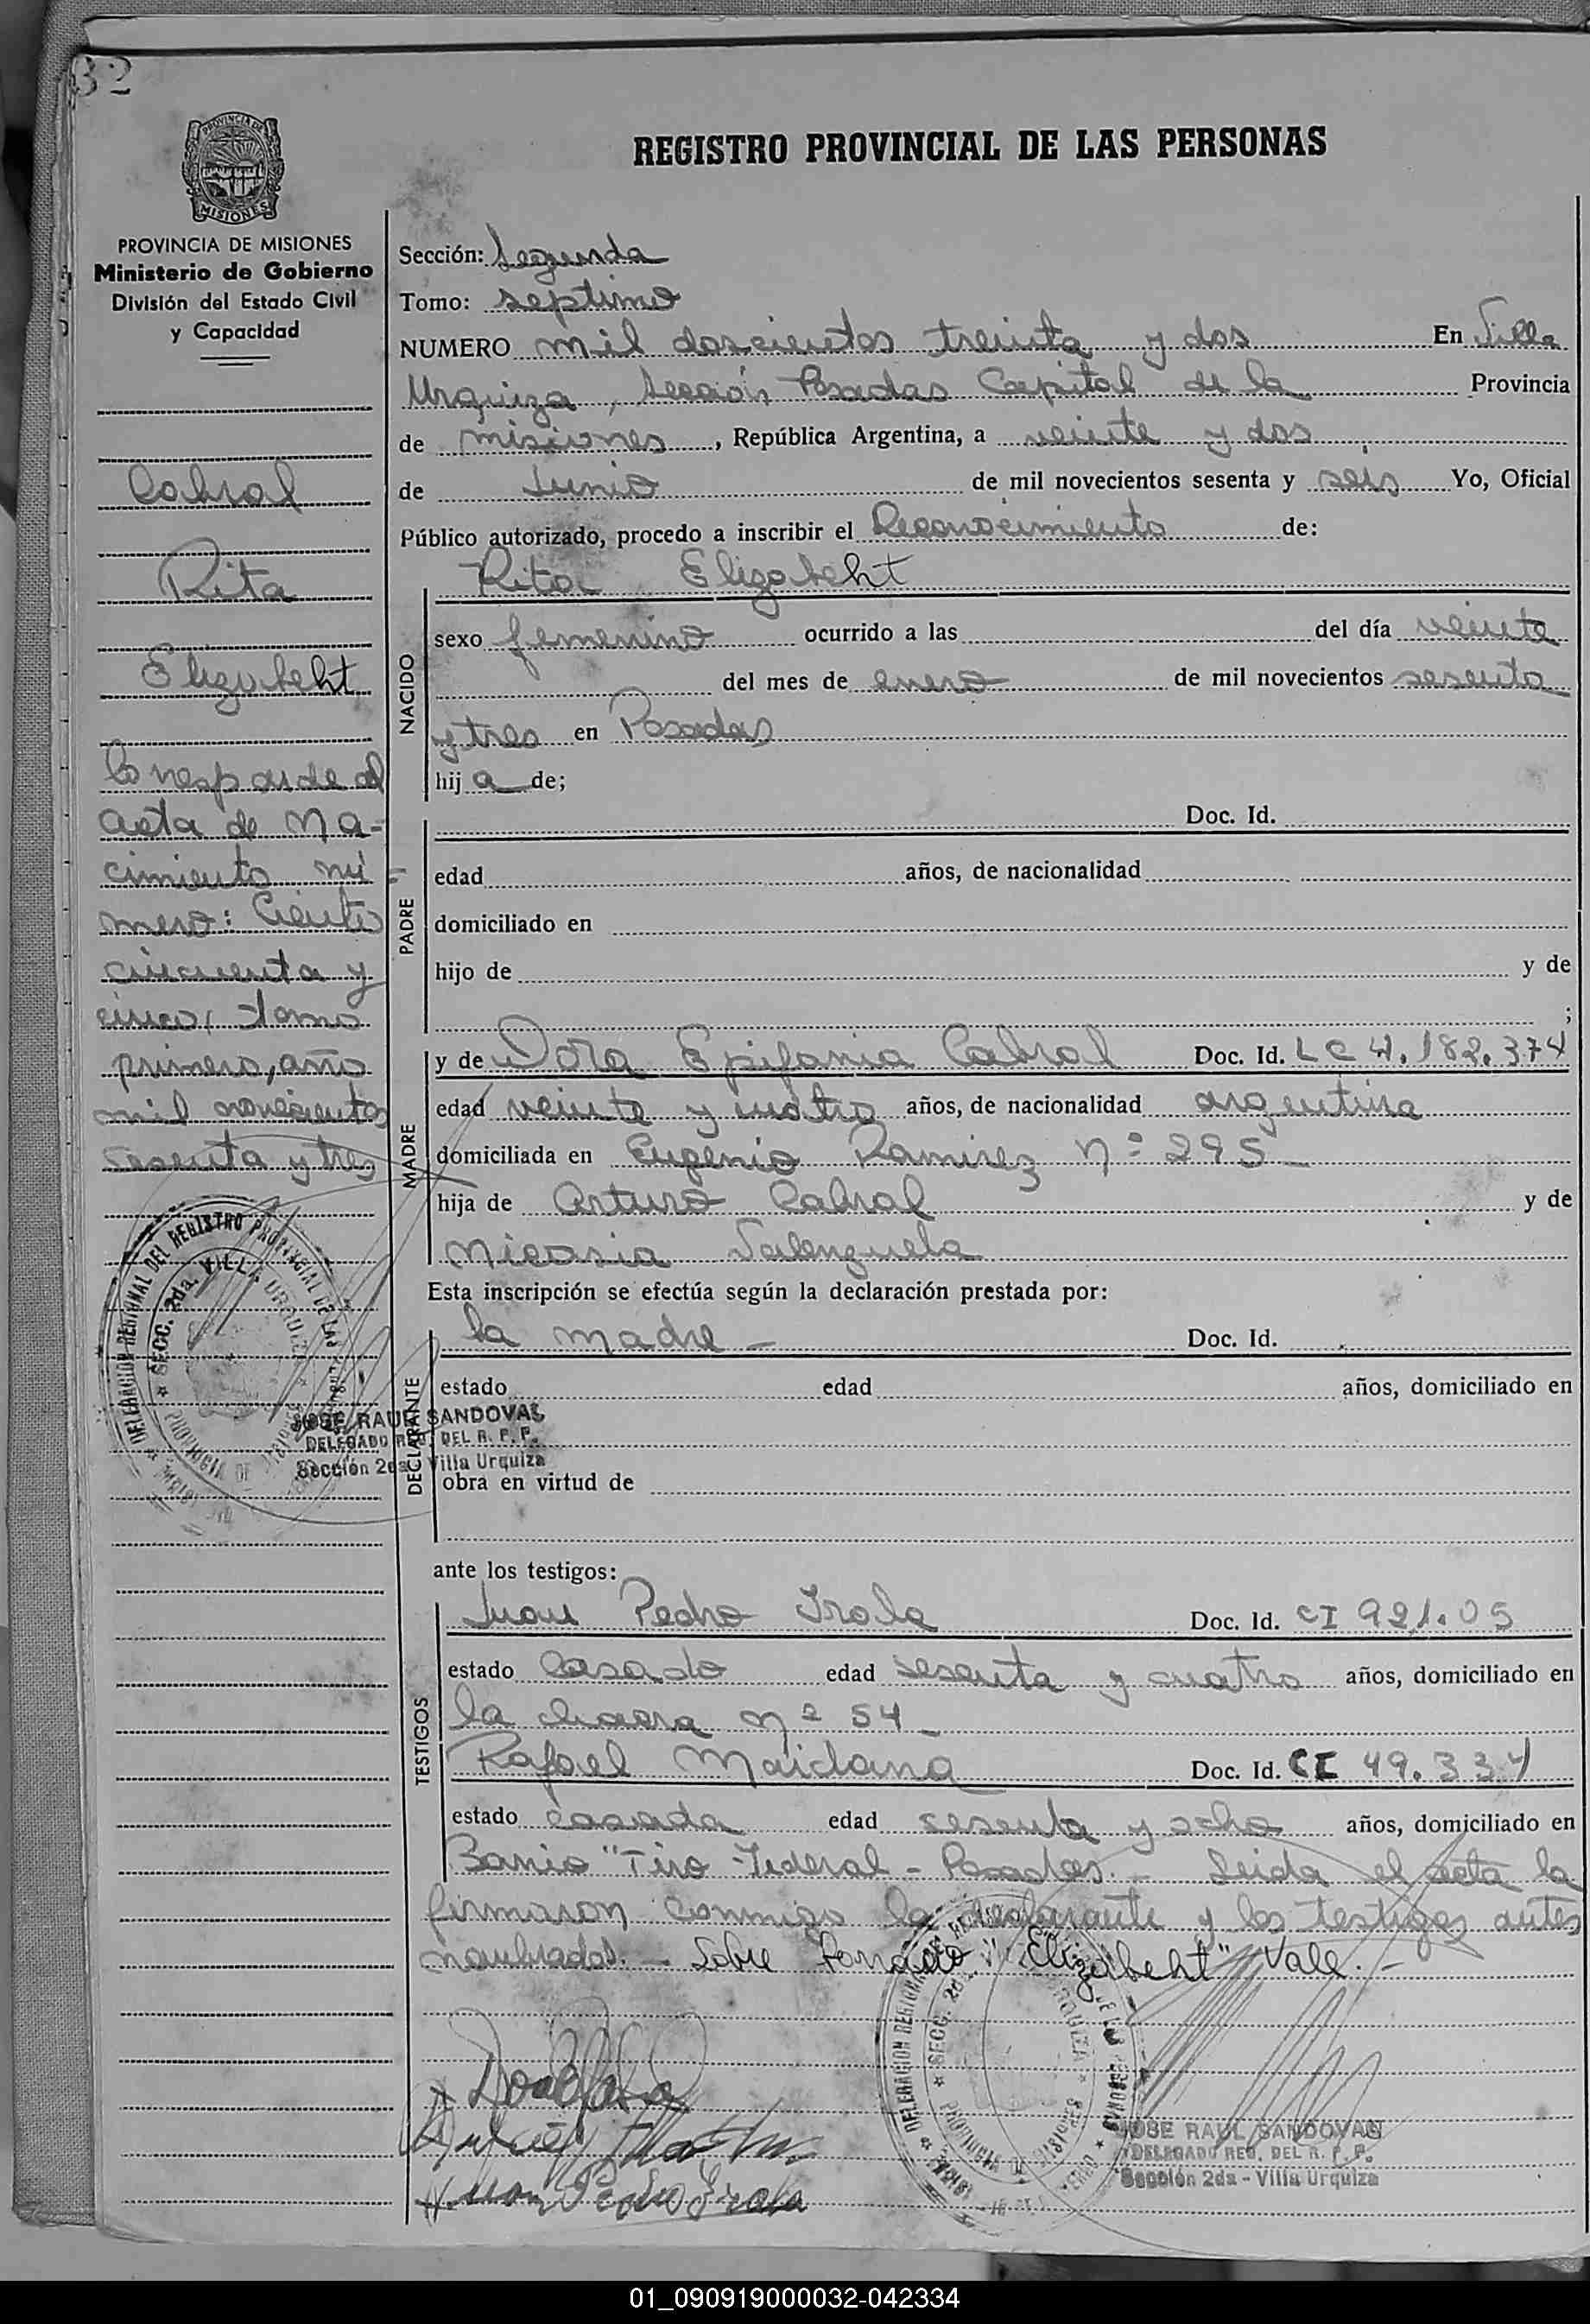 32
PROVINCIA DE
MISIONES
PROVINCIA DE MISIONES
Ministerio de Gobierno
División del Estado Civil
y Capacidad
Cabral
Rita
Elizabeht
Corresponde al
acta de na-
cimiento nú-
mero: Ciento
cincuenta y
cinco, tomo
primero, año
mil novecientos
sesenta y tres
DELEGACION REGIONAL DEL REGISTRO PROVINCIAL DE LAS
SECC. 2da. VILLA URQUIZA
PROVINCIA DE MISIONES
JOSE RAUL SANDOVAL
DELEGADO REG. DEL R. P. P.
Sección 2da - Villa Urquiza
REGISTRO PROVINCIAL DE LAS PERSONAS
Sección: Segunda
Tomo: septimo
NUMERO mil doscientos treinta y dos En Villa
Urquiza, Sección Posadas Capital de la Provincia
de misiones, República Argentina, a veinte y dos
de Junio de mil novecientos sesenta y seis Yo, Oficial
Público autorizado, procedo a inscribir el Reconocimiento de:
NACIDO
Rita Elizabeht
sexo femenino ocurrido a las del día veinte
del mes de enero de mil novecientos sesenta
y tres en Posadas
hija de;
PADRE
Doc. Id.
edad años, de nacionalidad
domiciliado en
hijo de y de
;
MADRE
y de Dora Epifania Cabral Doc. Id. LC 4.182.374
edad veinte y cuatro años, de nacionalidad argentina
domiciliada en Eugenio Ramirez nº 295-
hija de Arturo Cabral y de
Nicasia Valenzuela
Esta inscripción se efectúa según la declaración prestada por:
DECLARANTE
la madre - Doc. Id.
estado edad años, domiciliado en
obra en virtud de
ante los testigos:
TESTIGOS
Juan Pedro Irala Doc. Id. CI 921.05
estado Casado edad sesenta y cuatro años, domiciliado en
la chacra nº 54-
Rafael Maidana Doc. Id. CI 49.334
estado casada edad sesenta y ocho años, domiciliado en
Barrio "Tiro Federal - Posadas.- Leida el acta la
firmaron conmigo la declarante y los testigos antes
nombrados.- Sobre borrado: "Elizabeht" Vale.-
DELEGACION REGIONAL
SECC. 2da. URQUIZA
PROVINCIA DE MISIONES
Juan Pedro Irala
JOSE RAUL SANDOVAL
DELEGADO REG. DEL R. P. P.
Sección 2da - Villa Urquiza
01_090919000032-042334